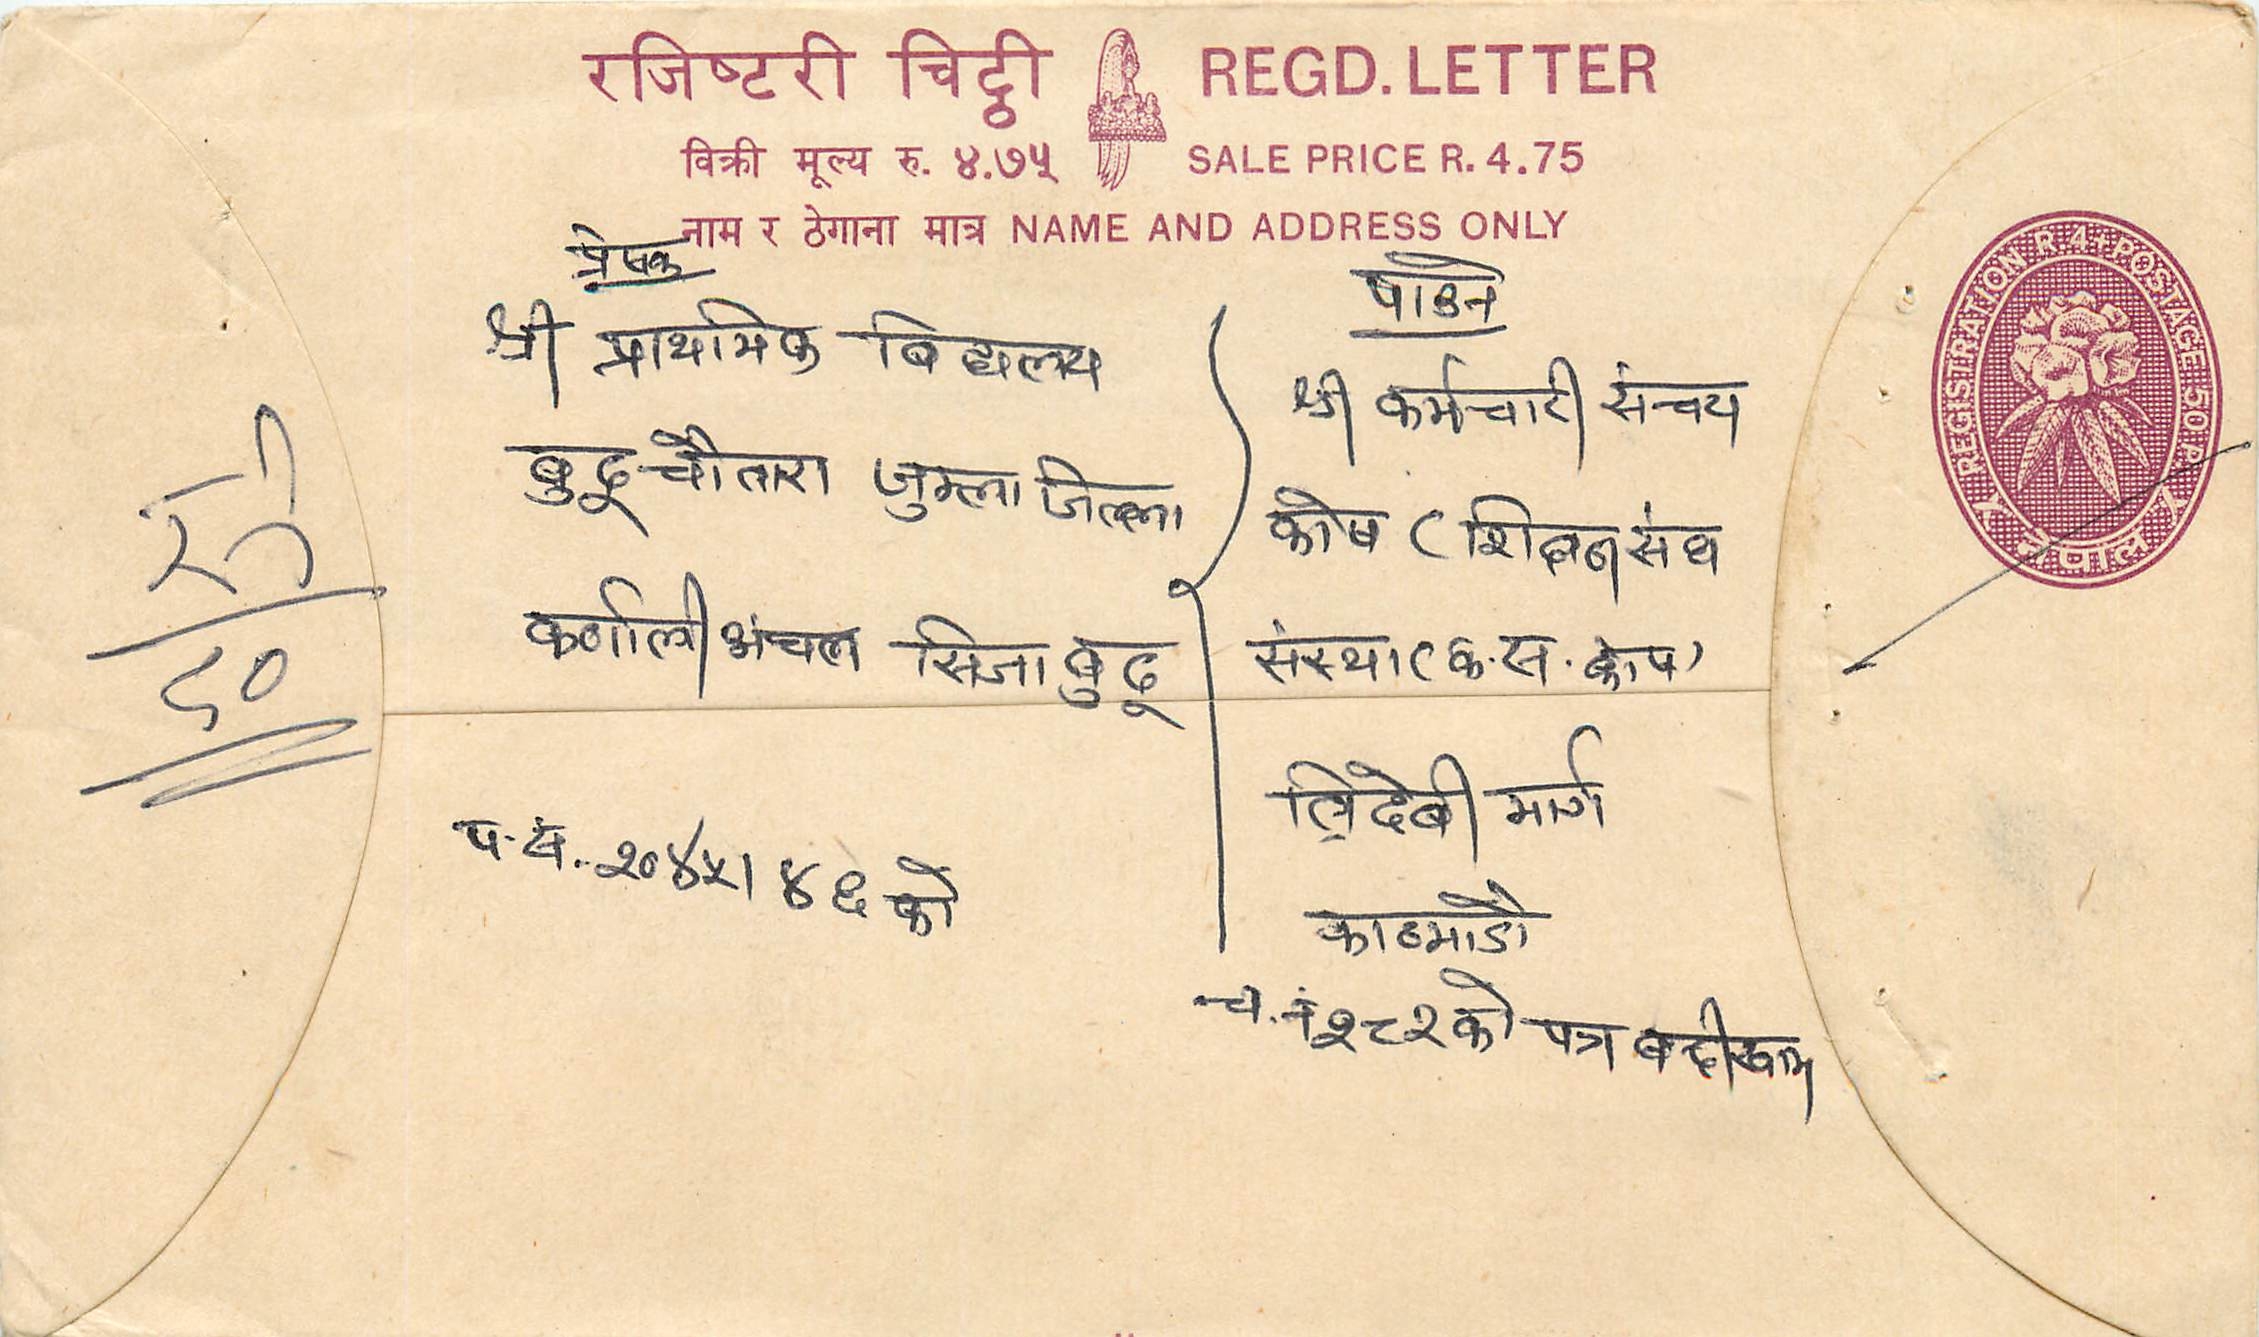 रजिष्टरी चिट्ठी REGD. LETTER
विक्री मूल्य रु. ४.७५ SALE PRICE R. 4.75
नाम र ठेगाना मात्र NAME AND ADDRESS ONLY
REGISTRATION R. 4 + POSTAGE 50 P.
नेपाल
प्रेषक
श्री प्राथमिक बिद्यलय
बुढू चौतारा जुम्ला जिल्ला
कर्णाली अंचल सिंजा बुढू
प. सं. २०४५।४६ को
पाउने
श्री कर्मचारी संचय
कोष (शिक्षण संघ
संस्था (क. स. कोष)
त्रिदेबी मार्ग
काठमाडौ
च. नं २८२ को पत्र
१०